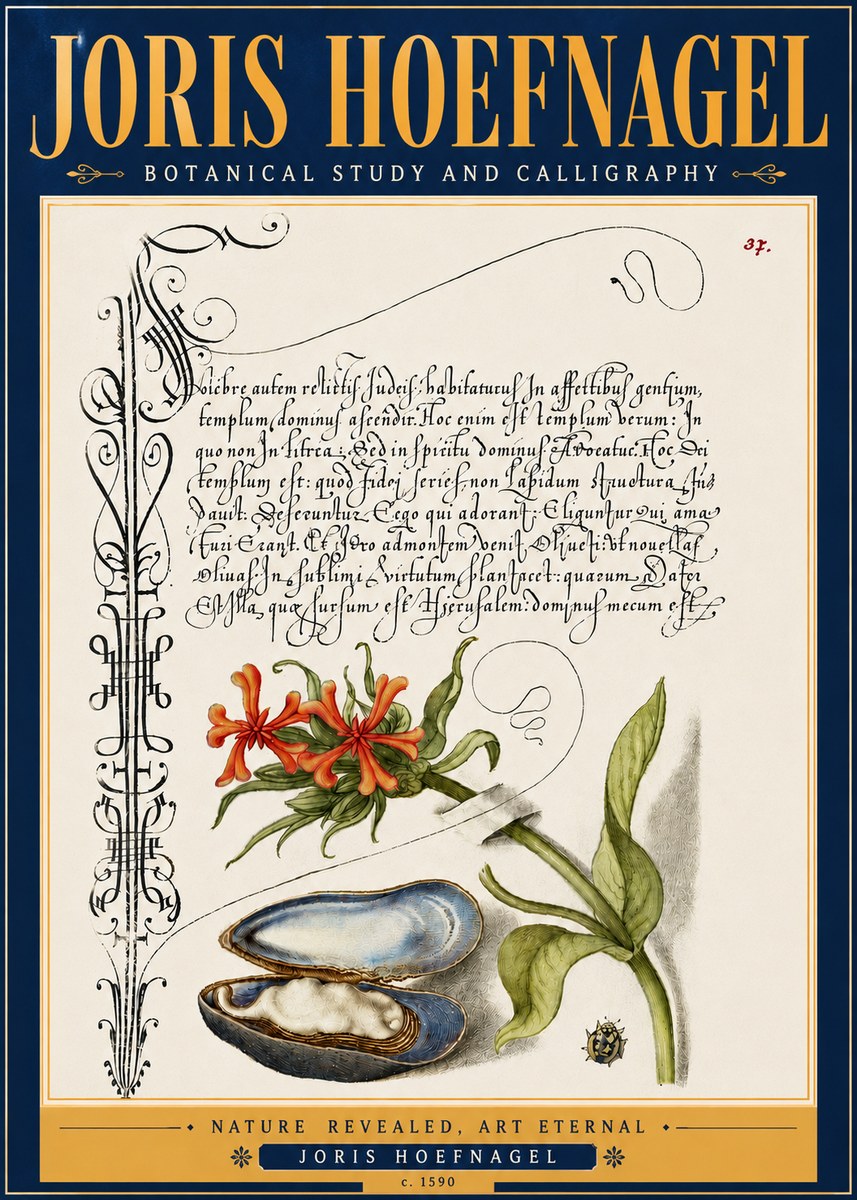 JORIS HOEFNAGEL
BOTANICAL STUDY AND CALLIGRAPHY
37.
autem relictis Judeis: habitaturus In affectibus gentium,
templum dominus ascendit. Hoc enim est templum verum: In
quo non In litera: Sed in spiritu dominus Hoc Dei
templum est: quod fidei series, non Lapidum structura
qui adorant: Eliguntur Qui
Et Ideo admontem venit
Olivas In sublimi virtutum
Et Illa quæ sursum est Hierusalem: dominus mecum est
NATURE REVEALED, ART ETERNAL
JORIS HOEFNAGEL
c. 1590